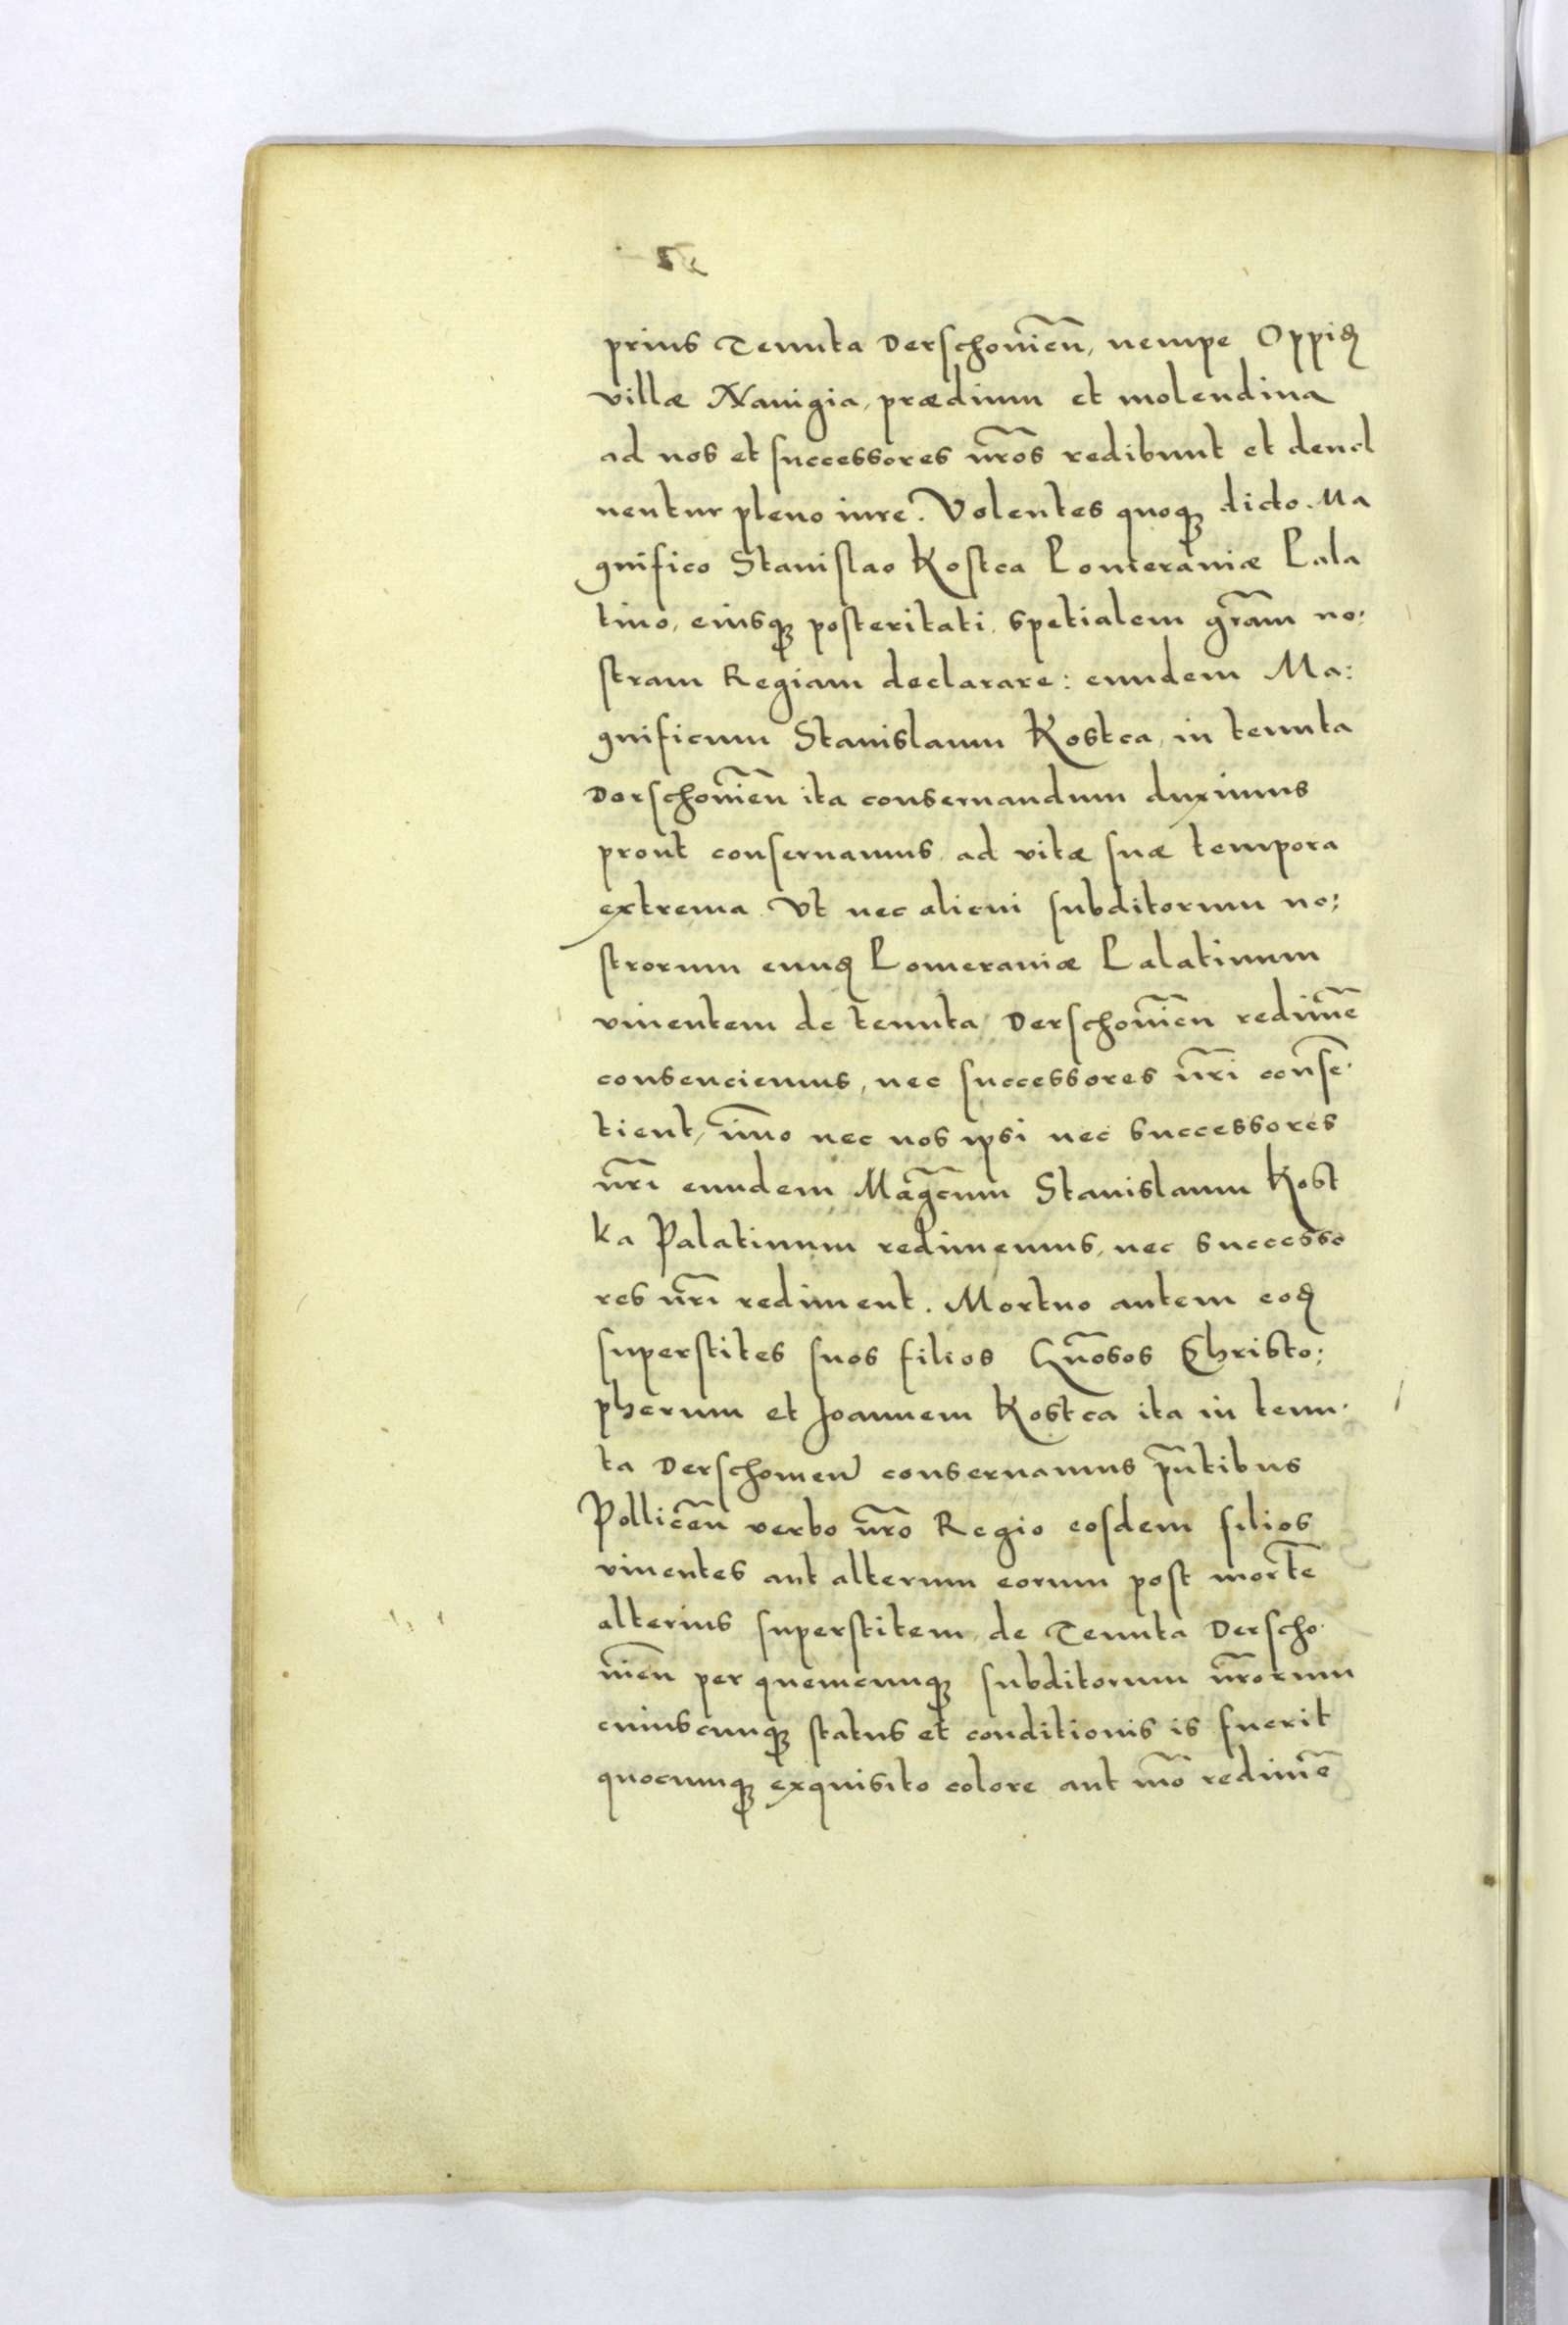 prius Tenuta Derschouien̄, nempe Oppidꝫ
villæ Nauigia, prædium et molendina
ad nos et successores nr̄os redibunt et deuol
uentur pleno iure. Volentes quoqꝫ dicto. Ma
gnifico Stanislao Kostca Pomeraniæ Pala
tino, eiusqꝫ posteritati, spetialem gr̄am no:
stram Regiam declarare: eundem Ma:
gnificum Stanislaum Kostca, in tenuta
Derschouien̄ ita conseruandum duximus
prout conseruamus, ad vitæ suæ tempora
extrema. Vt nec alicui subditorum no:
strorum eundꝫ Pomeraniæ Palatinum
viuentem de tenuta Derschouien̄ redimē
consenciemus, nec successores nr̄i consē
tient, im̄o nec nos ipsi nec successores
nr̄i eundem Maḡcum Stanislaum Kost
ka Palatinum redimemus, nec successo
res nr̄i rediment. Mortuo autem eodꝫ
superstites suos filios Gn̄osos Christo:
pherum et Joannem Kostca ita in tenu
ta Derschouien̄ conseruamus pn̄tibus
Pollicen̄ verbo nr̄o Regio eosdem filios
viuentes aut alterum eorum post mortē
alterius superstitem, de Tenuta Derscho
uien̄ per quemcunqꝫ subditorum nr̄orum
cuiuscunqꝫ status et conditionis is fuerit
quocunqꝫ exquisito colore aut mō redimē